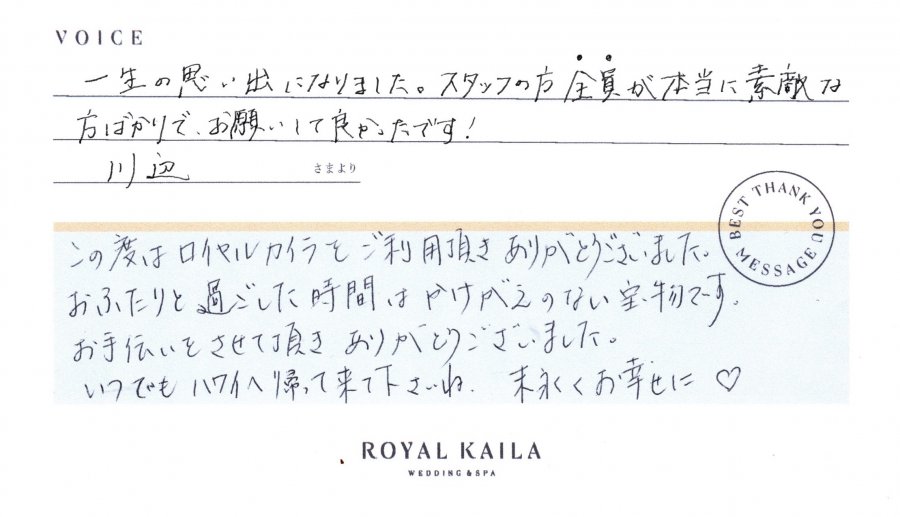 VOICE
一生の思い出になりました。スタッフの方全員が本当に素敵な
方ばかりで、お願いして良かったです！
川辺 さまより
BEST THANK YOU MESSAGE
この度はロイヤルカイラをご利用頂きありがとうございました。
おふたりと過ごした時間はかけがえのない宝物です。
お手伝いをさせて頂きありがとうございました。
いつでもハワイへ帰って来て下さいね。末永くお幸せに♡
ROYAL KAILA
WEDDING & SPA